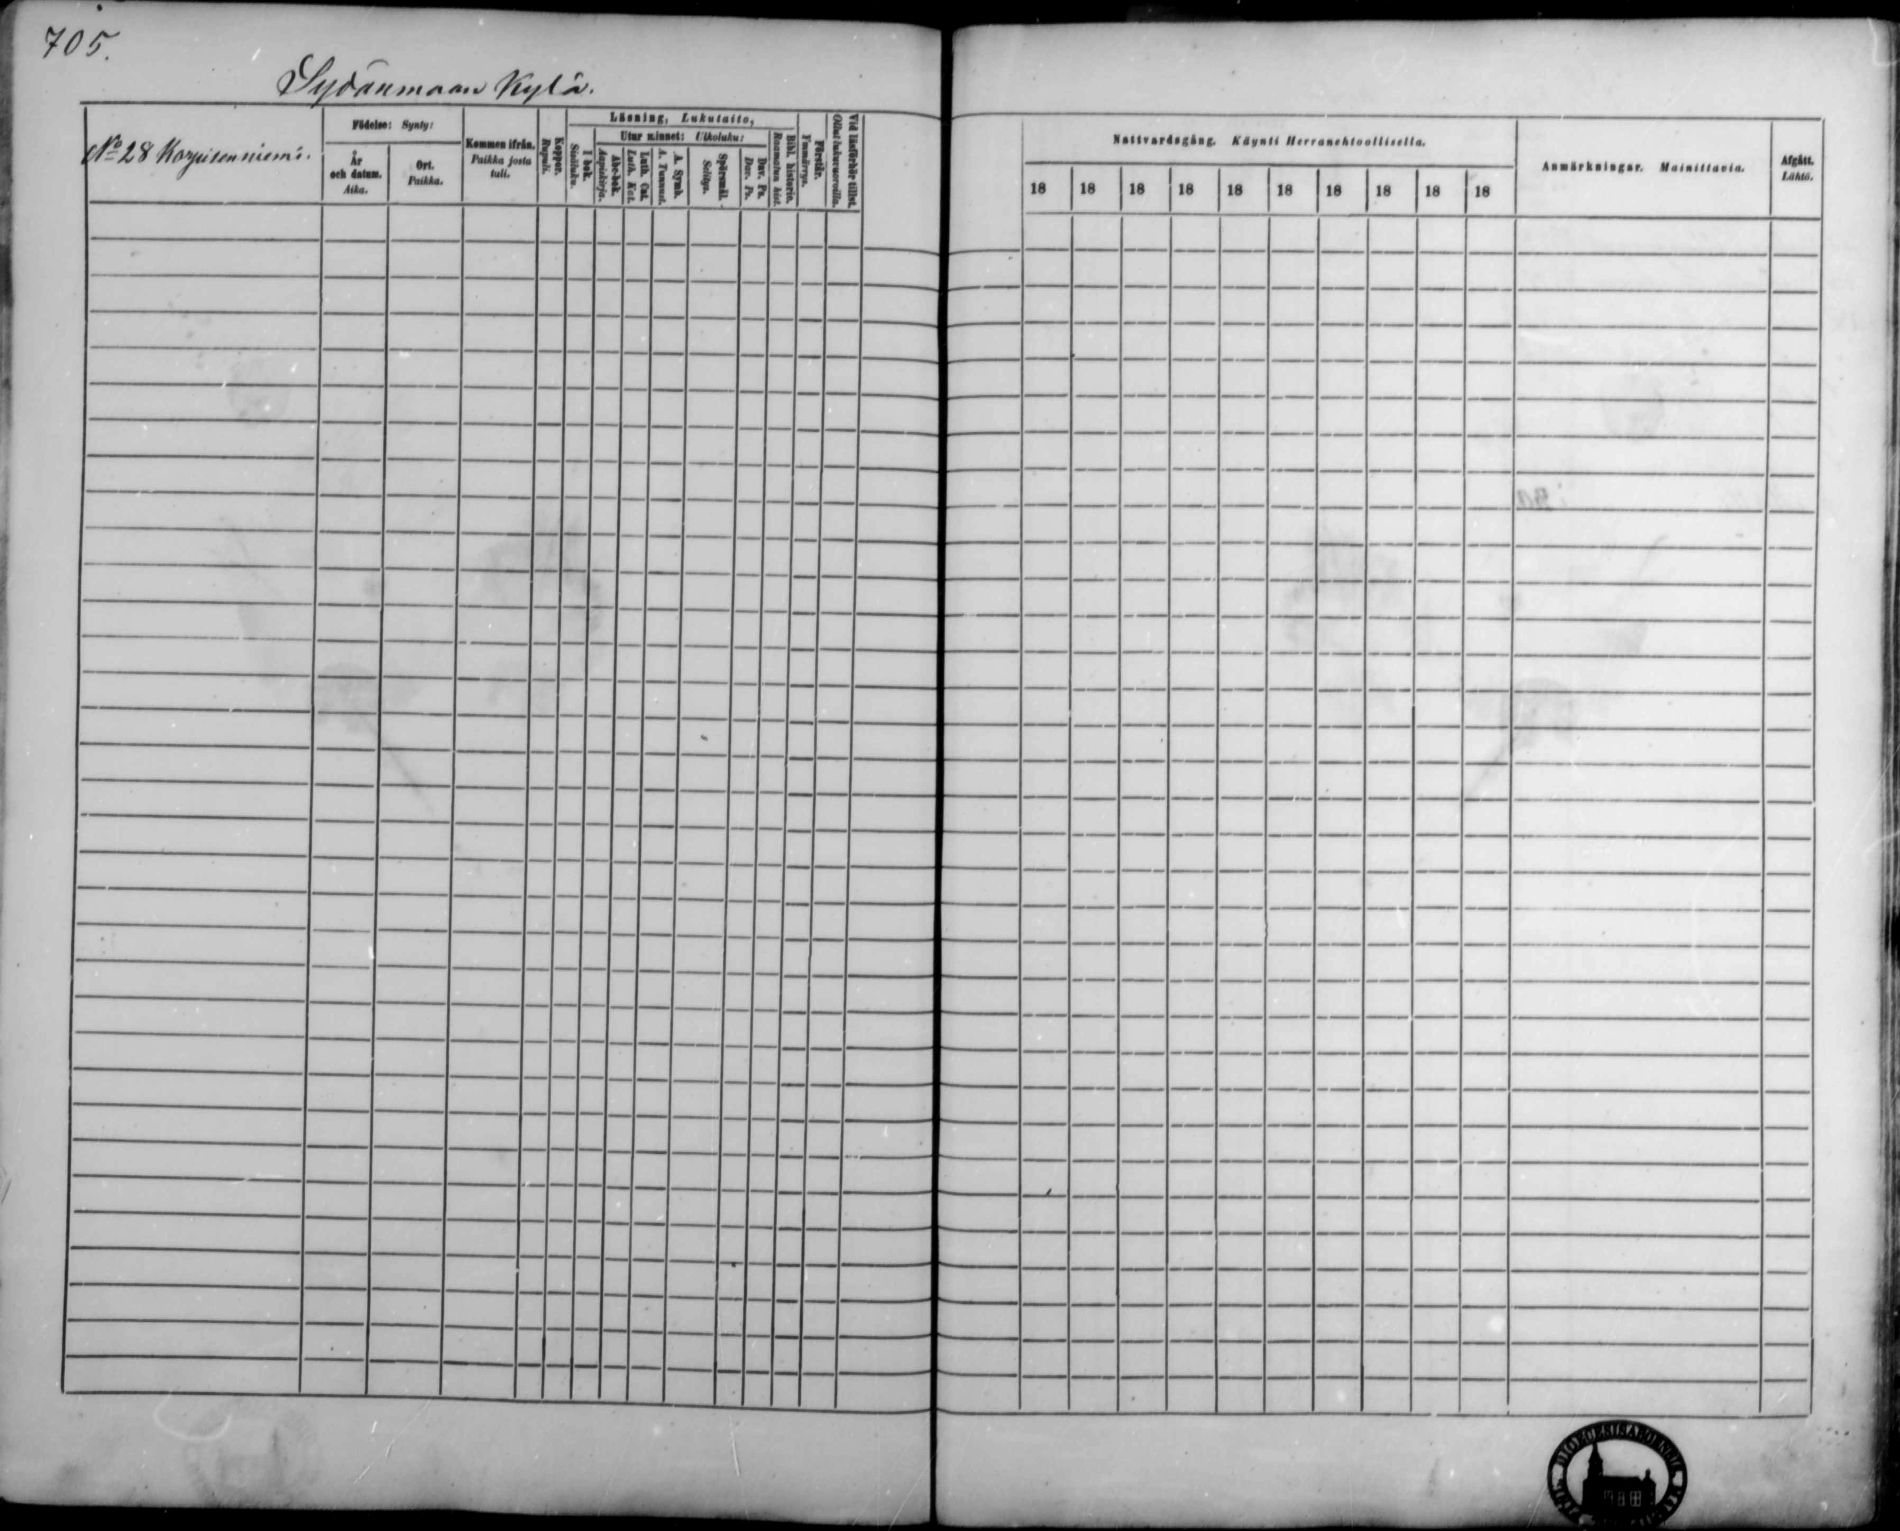 705.
Sydänmaan Kylä.
No 28 Korpisenniemi.
Födelse: Synty:
År
och datum.
Aika.
Ort.
Paikka.
Kommen ifrån.
Paikka josta
tuli.
Koppor.
Rupuli.
Läsning, Lukutaito,
I bok.
Sisäluku.
Utur minnet: Ulkoluku:
Abc-bok.
Aapiskirja.
Luth. Cat.
Luth. Kat.
A. Symb.
A. Tunnust.
Spörsmål.
Selitys.
Dav. Ps.
Dav. Ps.
Bibl. historie.
Raamatun hist.
Förstår.
Ymmärrys.
Vid läsförhör tillst.
Ollut lukuvuoroilla.
Nattvardsgång. Käynti Herranehtoollisella.
18 18 18 18 18 18 18 18 18 18
Anmärkningar. Mainittavia.
Afgått.
Lähtö.